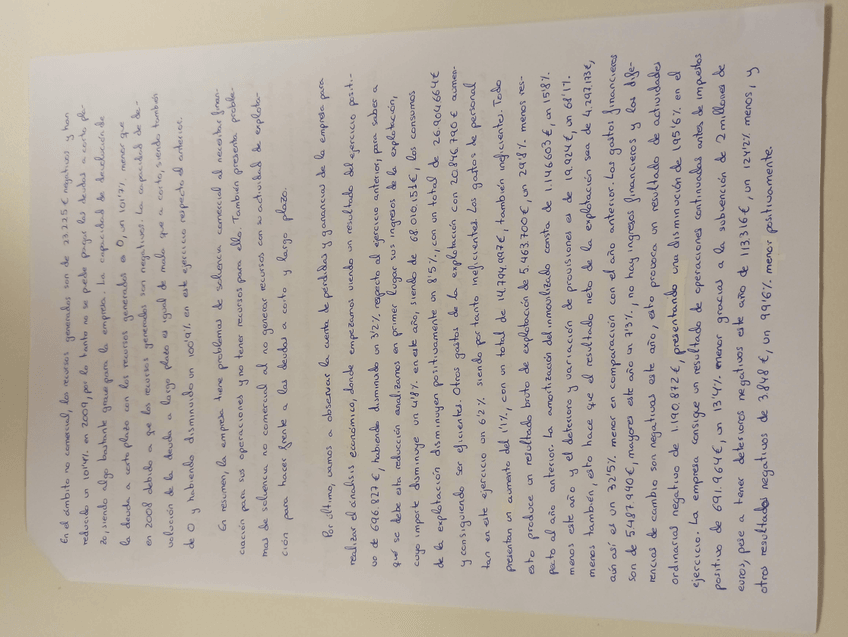 En el ámbito no comercial, los recursos generados son de 23.225 € negativos y han
reducido un 101'4% en 2009, por lo tanto no se puede pagar las deudas a corto pla-
zo, siendo algo bastante grave para la empresa. La capacidad de devolución de
la deuda a corto plazo con los recursos generados es 0, un 101'7% menor que
en 2008 debido a que los recursos generados son negativos. La capacidad de de-
volución de la deuda a largo plazo es igual de mala que a corto, siendo también
de 0 y habiendo disminuido un 100'9% en este ejercicio respecto al anterior.
En resumen, la empresa tiene problemas de solvencia comercial al necesitar finan-
ciación para sus operaciones y no tener recursos para ello. También presenta proble-
mas de solvencia no comercial al no generar recursos con su actividad de explota-
ción para hacer frente a las deudas a corto y largo plazo.
Por último, vamos a observar la cuenta de pérdidas y ganancias de la empresa para
realizar el análisis económico, donde empezamos viendo un resultado del ejercicio positi-
vo de 696.827 €, habiendo disminuido un 3'2% respecto al ejercicio anterior, para saber a
qué se debe esta reducción analizamos en primer lugar sus ingresos de la explotación,
cuyo importe disminuye un 4'8% en este año, siendo de 68.010.151 €, los consumos
de la explotación disminuyen positivamente un 8'5%, con un total de 26.904.664 €
y consiguiendo ser eficientes. Otros gastos de la explotación con 20.846.790 € aumen-
tan en este ejercicio un 6'2% siendo por tanto ineficientes. Los gastos de personal
presentan un aumento del 1'1%, con un total de 14.794.997 €, también ineficientes. Todo
esto produce un resultado bruto de explotación de 5.463.700 €, un 29'8% menos res-
pecto al año anterior. La amortización del inmovilizado consta de 1.146.603 €, un 15'8%
menos este año y el deterioro y variación de provisiones es de 19.924 €, un 68'1%
menos también, esto hace que el resultado neto de la explotación sea de 4.297.173 €,
aún así es un 32'5% menor en comparación con el año anterior. Los gastos financieros
son de 5.487.990 €, mayores este año un 7'3%, no hay ingresos financieros y las dife-
rencias de cambio son negativas este año, esto provoca un resultado de actividades
ordinarias negativo de 1.190.872 €, presentando una disminución de 195'6% en el
ejercicio. La empresa consigue un resultado de operaciones continuadas antes de impuestos
positivo de 691.964 €, un 13'4% menor gracias a la subvención de 2 millones de
euros, pese a tener deterioros negativos este año de 113.316 €, un 124'2% menos, y
otros resultados negativos de 3.848 €, un 99'6% menor positivamente.